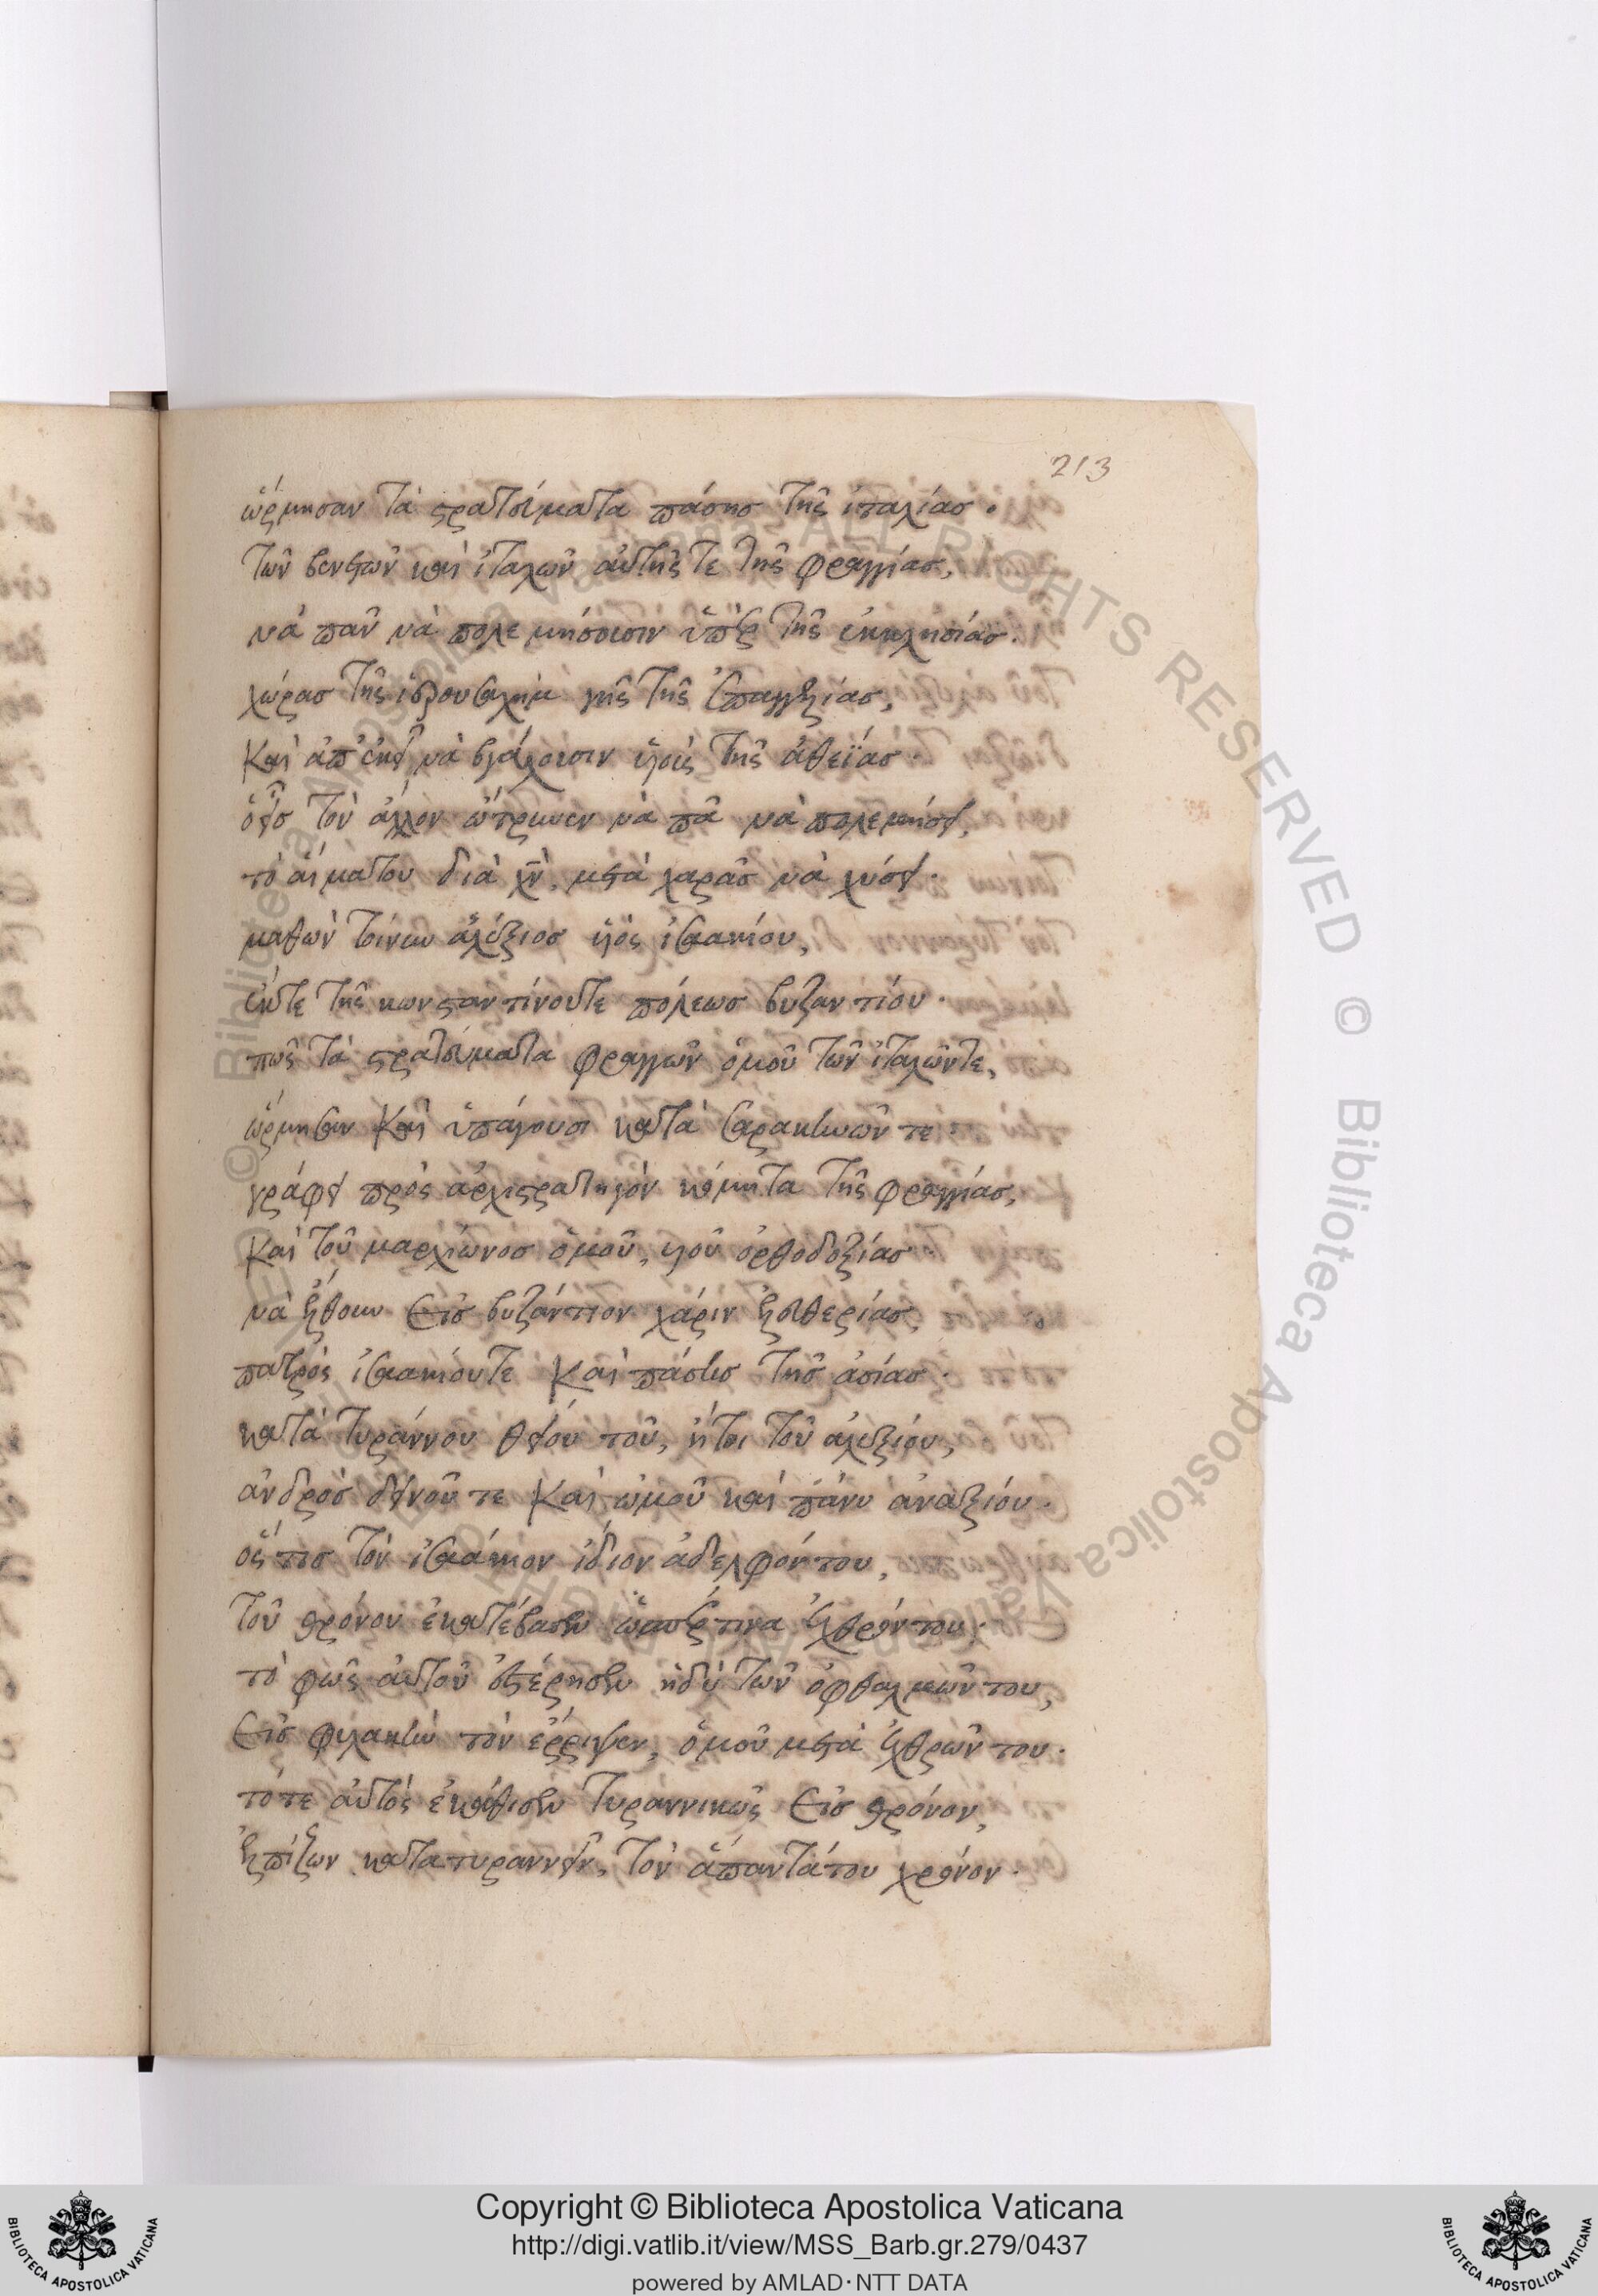 213
ὥρμησαν τὰ στρατεύματα πάσης τῆς ἰταλίας.
τῶν βενετῶν καὶ ἰταλῶν αὐτῆς τε τῆς φραγγίας,
νὰ πᾶν νὰ πολεμήσουσιν ὑπὲρ τῆς ἐκκλησίας.
χώρας τῆς ἱερουσαλὴμ γῆς τῆς ἐπαγγελίας,
καὶ ἀπ' ἐκεῖ νὰ βγάλουσιν υἱοὺς τῆς ἀθεΐας.
τὸν ἄλλον ὤτρυνεν νὰ πᾶ νὰ πολεμήσει,
τὸ αἷμα του διὰ χν̄, μετὰ χαρᾶς νὰ χύσει.
μαθὼν ἀλέξιος υἱὸς ἰσαακίου,
ἐκ τε τῆς κωνσταντίνου τε πόλεως βυζαντίου.
πῶς τὰ στρατεύματα φραγγῶν ὁμοῦ τῶν ἰταλῶν τε,
ὥρμησαν καὶ ὑπάγουσι κατὰ σαρακηνῶν τε.
γράφει πρὸς ἀρχιστρατηγὸν κόμητα τῆς φραγγίας,
καὶ τοῦ μαρχιώνος ὁμοῦ, υἱοῦ ὀρθοδοξίας.
νὰ ἔλθουν εἰς βυζάντιον χάριν ἐλευθερίας,
πατρὸς ἰσαακίου τε καὶ πάσης τῆς ἀσίας.
κατὰ τυράννου θείου του, ἤτοι τοῦ ἀλεξίου,
ἀνδρὸς δεινοῦ τε καὶ ὠμοῦ καὶ πάνυ ἀναξίου.
ὅς τις τὸν ἰσαάκιον ἴδιον ἀδελφόν του,
τοῦ θρόνου ἐκατέβασεν ὥσπερ τινα ἐχθρόν του.
τὸ φῶς αὐτοῦ ἐστέρησεν ἡδὺ τῶν ὀφθαλμῶν του,
εἰς φυλακὴν τὸν ἔρριψεν, ὁμοῦ μετὰ ἐχθρῶν του.
τότε αὐτὸς ἐκάθισεν τυραννικῶς εἰς θρόνον,
ἐλπίζων κατατυραννεῖν, τὸν ἅπαντά του χρόνον.
Copyright © Biblioteca Apostolica Vaticana
http://digi.vatlib.it/view/MSS_Barb.gr.279/0437
powered by AMLAD·NTT DATA
BIBLIOTECA APOSTOLICA VATICANA
BIBLIOTECA APOSTOLICA VATICANA